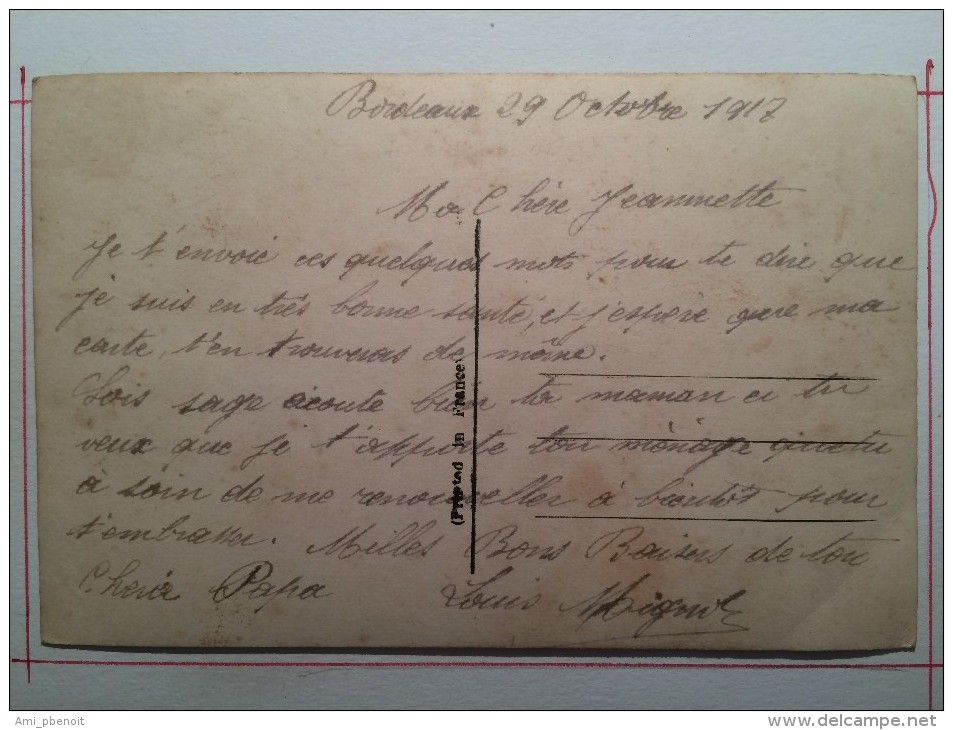 Bordeaux 29 Octobre 1917
Ma Chère Jeannette
Je t'envoie ces quelques mots pour te dire que
je suis en très bonne santé, et j'espère que ma
carte, t'en trouveras de même.
Sois sage écoute bien ta maman ci tu
veux que je t'apporte ton ménage que tu
à soin de me renouveller à bientôt pour
t'embrasser. Milles Bons Baisers de ton
Cherie Papa Louis Mignot
(Printed in France)
Ami_pbenoit
www.delcampe.net